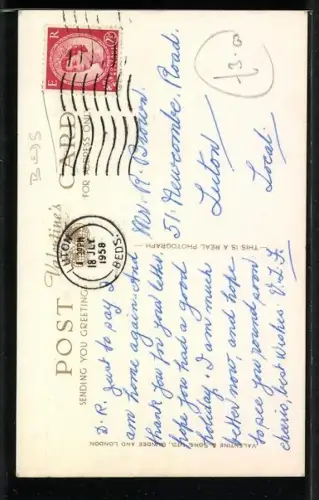 POST Valentine's CARD
SENDING YOU GREETINGS
FOR ADDRESS ONLY
E R
LUTON
18 JLY
1958
BEDS.
BEDS
£3.00
D. R. Just to say I
am home again. And
thank you for your letter.
hope you had a good
holiday. I am much
better now, and hope
to see you round soon
cheerio, best wishes. V.L.F.
Mrs. R. Brown.
51. Newcombe. Road.
Luton
Local.
THIS IS A REAL PHOTOGRAPH
VALENTINE & SONS, LTD., DUNDEE AND LONDON